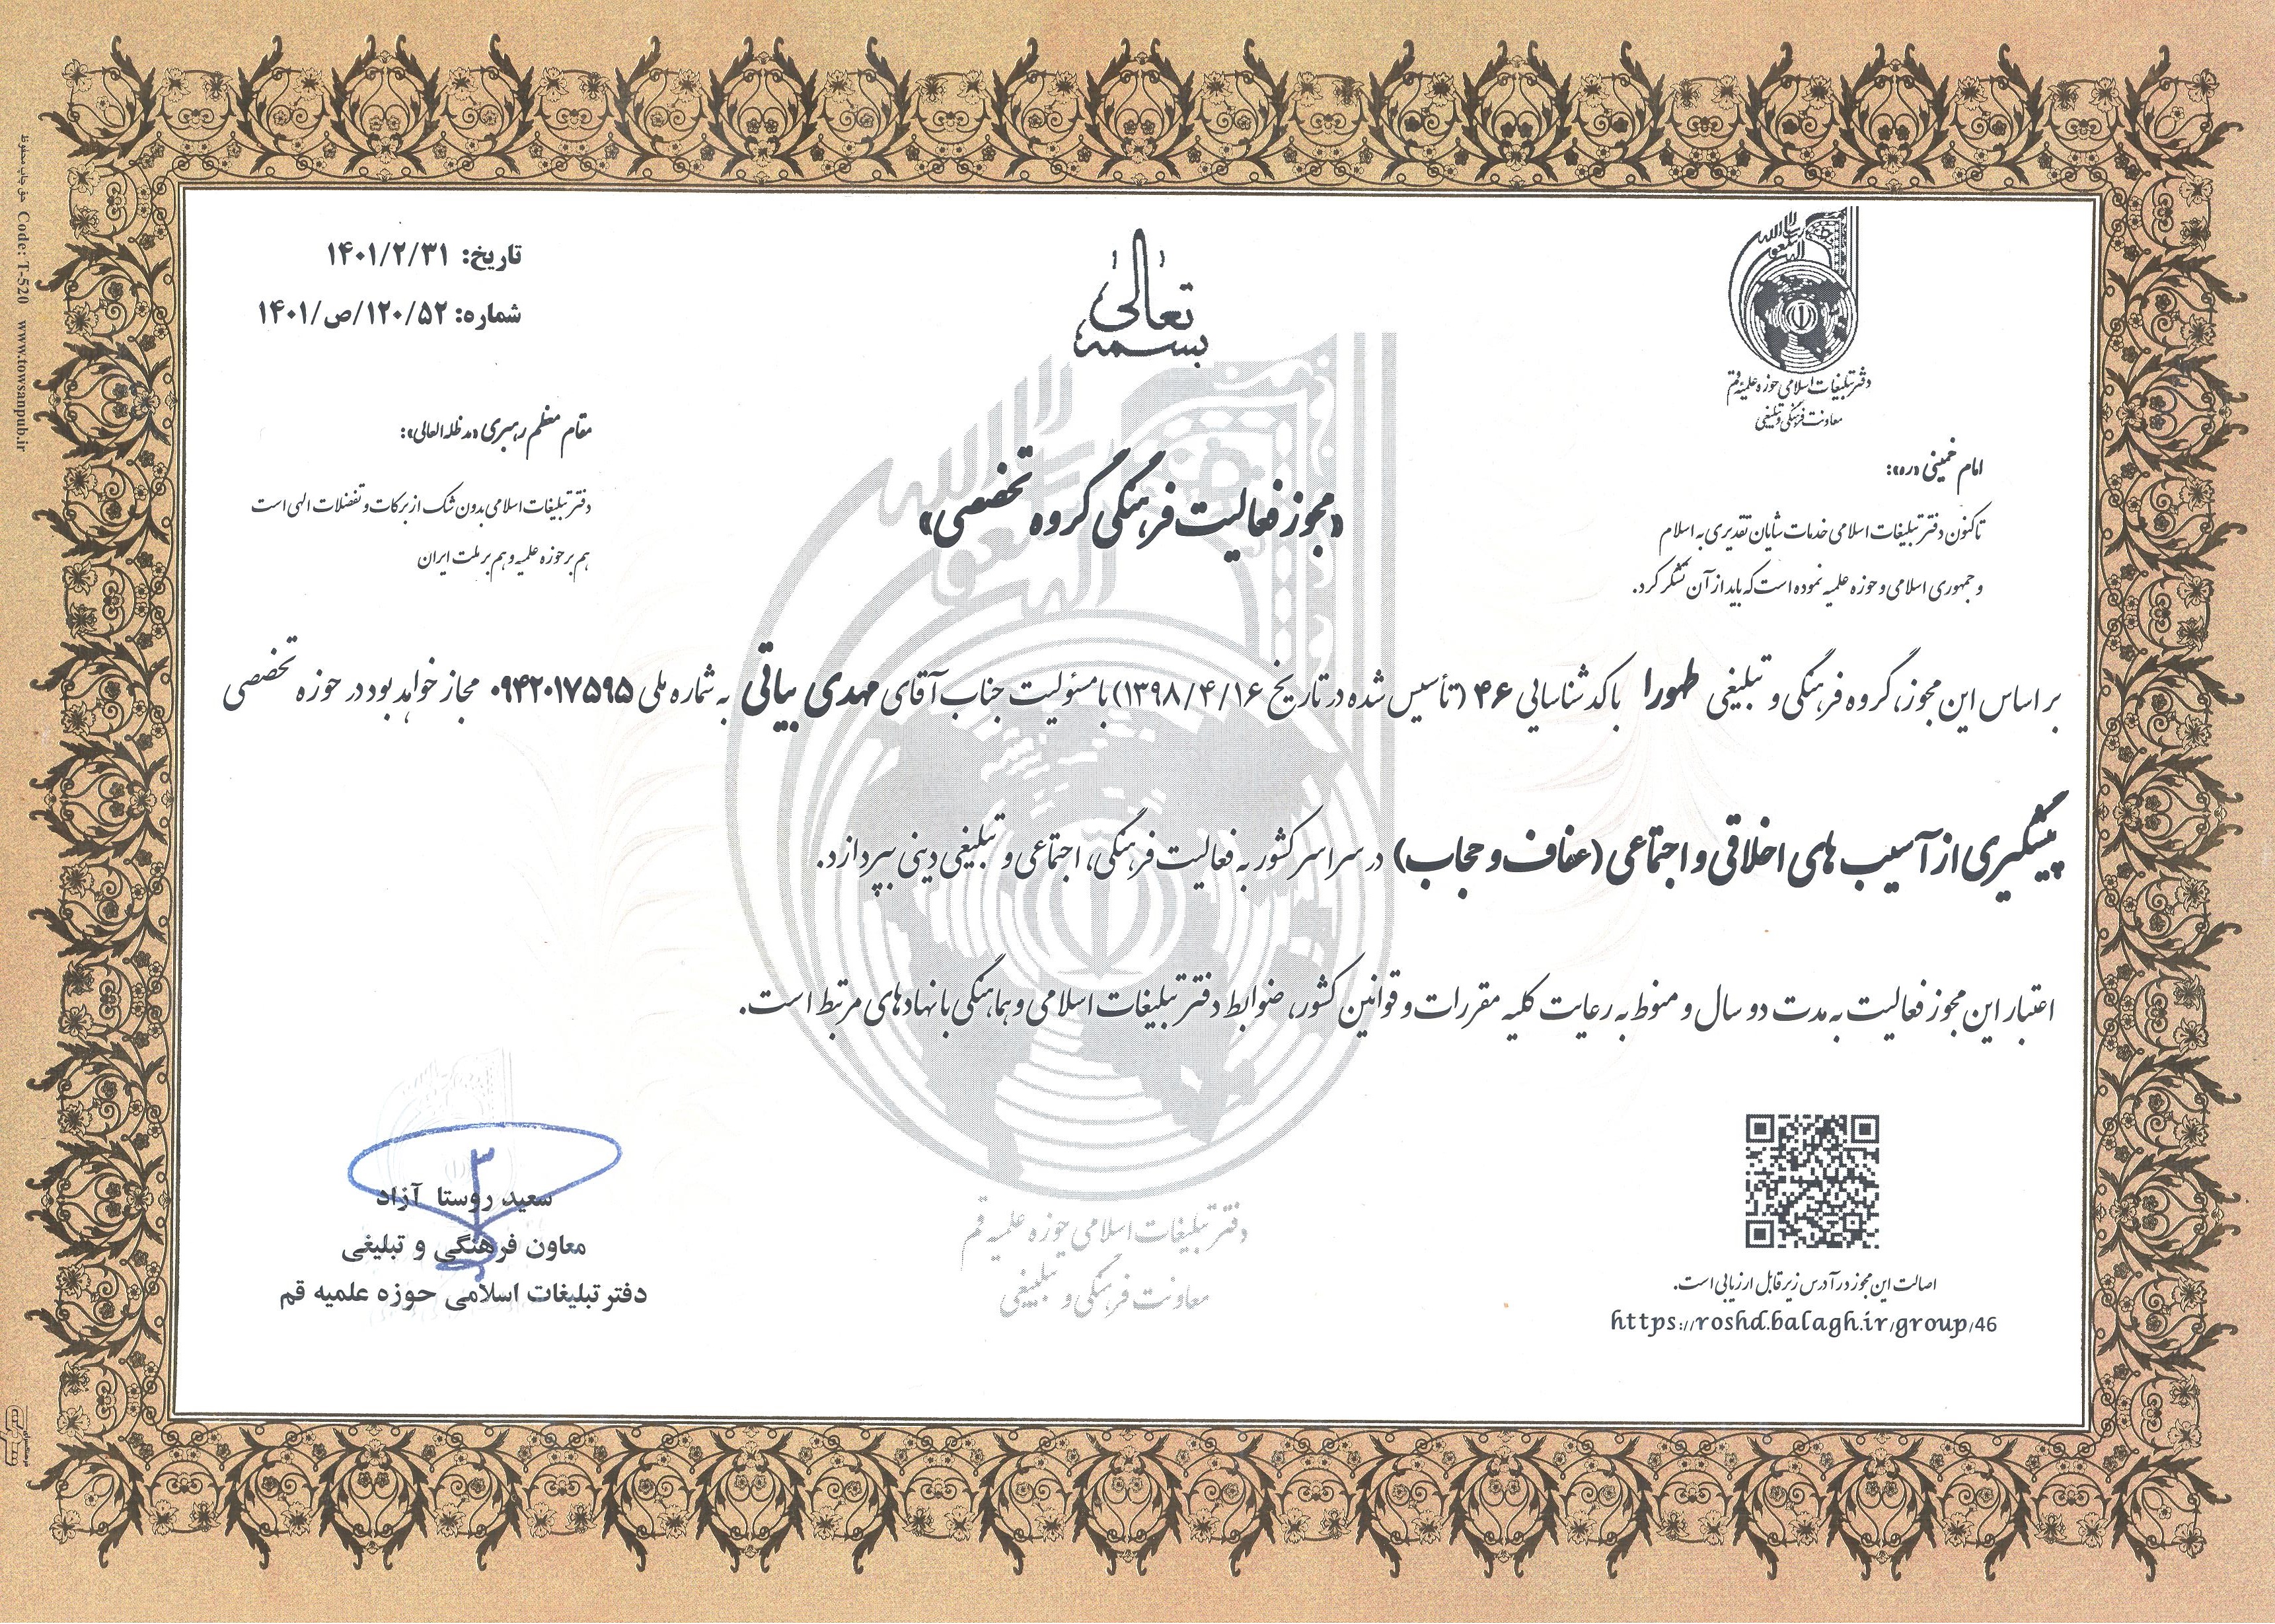 بسمه تعالی
دفتر تبلیغات اسلامی حوزه علمیه قم
معاونت فرهنگی و تبلیغی
تاریخ: ۱۴۰۱/۲/۳۱
شماره: ۱۲۰/۵۲/ص/۱۴۰۱
امام خمینی «ره»:
تاکنون دفتر تبلیغات اسلامی خدمات شایان تقدیری به اسلام
و جمهوری اسلامی و حوزه علمیه نموده است که باید از آن تشکر کرد.
مقام معظم رهبری «مدظله العالی»:
دفتر تبلیغات اسلامی بدون شک از برکات و تفضلات الهی است
هم بر حوزه علمیه و هم بر ملت ایران
«مجوز فعالیت فرهنگی گروه تخصصی»
بر اساس این مجوز، گروه فرهنگی و تبلیغی طهورا با کد شناسایی ۴۶ (تأسیس شده در تاریخ ۱۳۹۸/۴/۱۶) با مسئولیت جناب آقای مهدی بیاتی به شماره ملی ۰۹۴۲۰۱۷۵۹۵ مجاز خواهد بود در حوزه تخصصی
پیشگیری از آسیب های اخلاقی و اجتماعی (عفاف و حجاب) در سراسر کشور به فعالیت فرهنگی، اجتماعی و تبلیغی دینی بپردازد.
اعتبار این مجوز فعالیت به مدت دو سال و منوط به رعایت کلیه مقررات و قوانین کشور، ضوابط دفتر تبلیغات اسلامی و هماهنگی با نهادهای مرتبط است.
اصالت این مجوز در آدرس زیر قابل ارزیابی است.
https://roshd.balagh.ir/group/46
دفتر تبلیغات اسلامی حوزه علمیه قم
معاونت فرهنگی و تبلیغی
سعید روستا آزاد
معاون فرهنگی و تبلیغی
دفتر تبلیغات اسلامی حوزه علمیه قم
حق چاپ محفوظ Code: T-520 www.towsanpub.ir